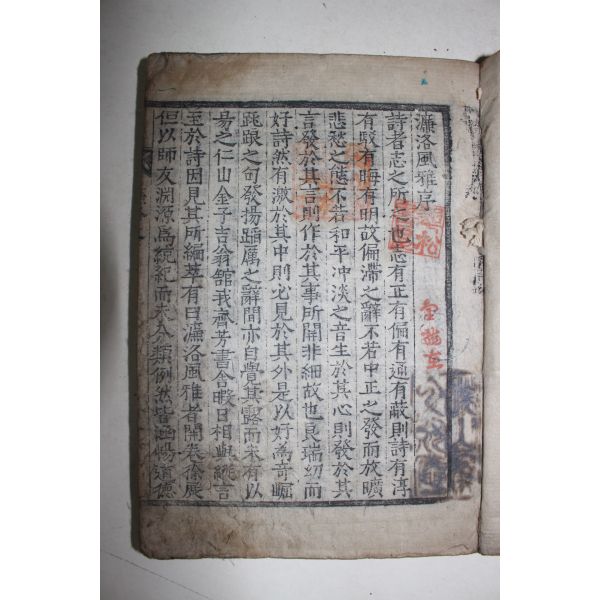 濂洛風雅序
詩者志之所之也志有正有偏有通有蔽則詩有淳
有駁有晦有明故偏滯之辭不若中正之發而放曠
悲愁之態不若和平冲淡之音生於其心則發於其
言發於其言則作於其事所関非細故也良瑞幼而
好詩然有激於其中則必見於其外是以好為奇崛
跳踉之句發揚蹈厲之辭間亦自覺其露而未有以
易之仁山金子吉翁館我齊芳書舍暇日相與䌫言
至於詩因見其所編萃有曰濂洛風雅者開卷徐展
但以師友淵源為統紀而未分類例然皆涵暢道德